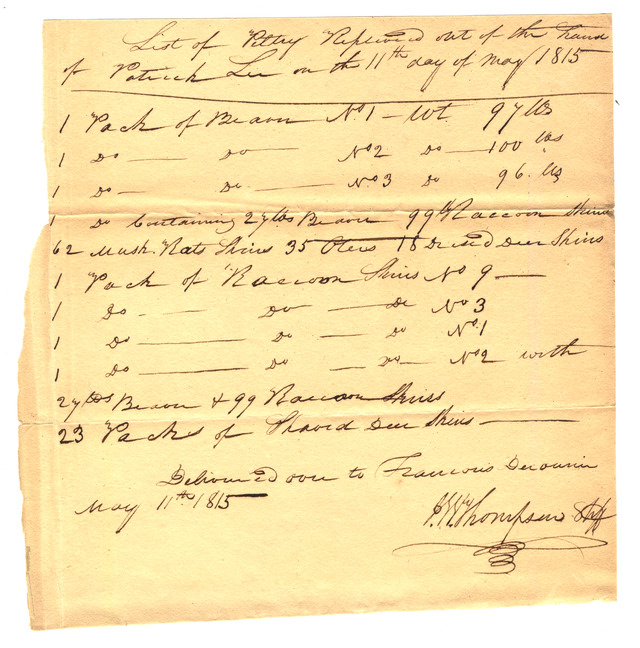 List of Peltry Replevied out of the hands
of Patrick Lee on the 11th day of May 1815
1 Pack of Beaver No 1 - Wt 97 lbs
1 Do — Do — No 2 Do — 100 lbs
1 Do — Do — No 3 Do 96 lbs
1 Do Containing 27 lbs Beaver 99 Raccoon Skins
62 Musk Rats Skins 35 Oters 18 Dressed Deer Skins
1 Pack of Raccoon Skins No 9 —
1 Do — Do — Do No 3
1 Do — Do — Do No 1
1 Do — Do — Do — No 2 with
27 lbs Beaver & 99 Raccoon Skins
23 Packs of Shaved Deer Skins —
Delivered over to Francois Derouin
May 11th 1815
Thompson Shff